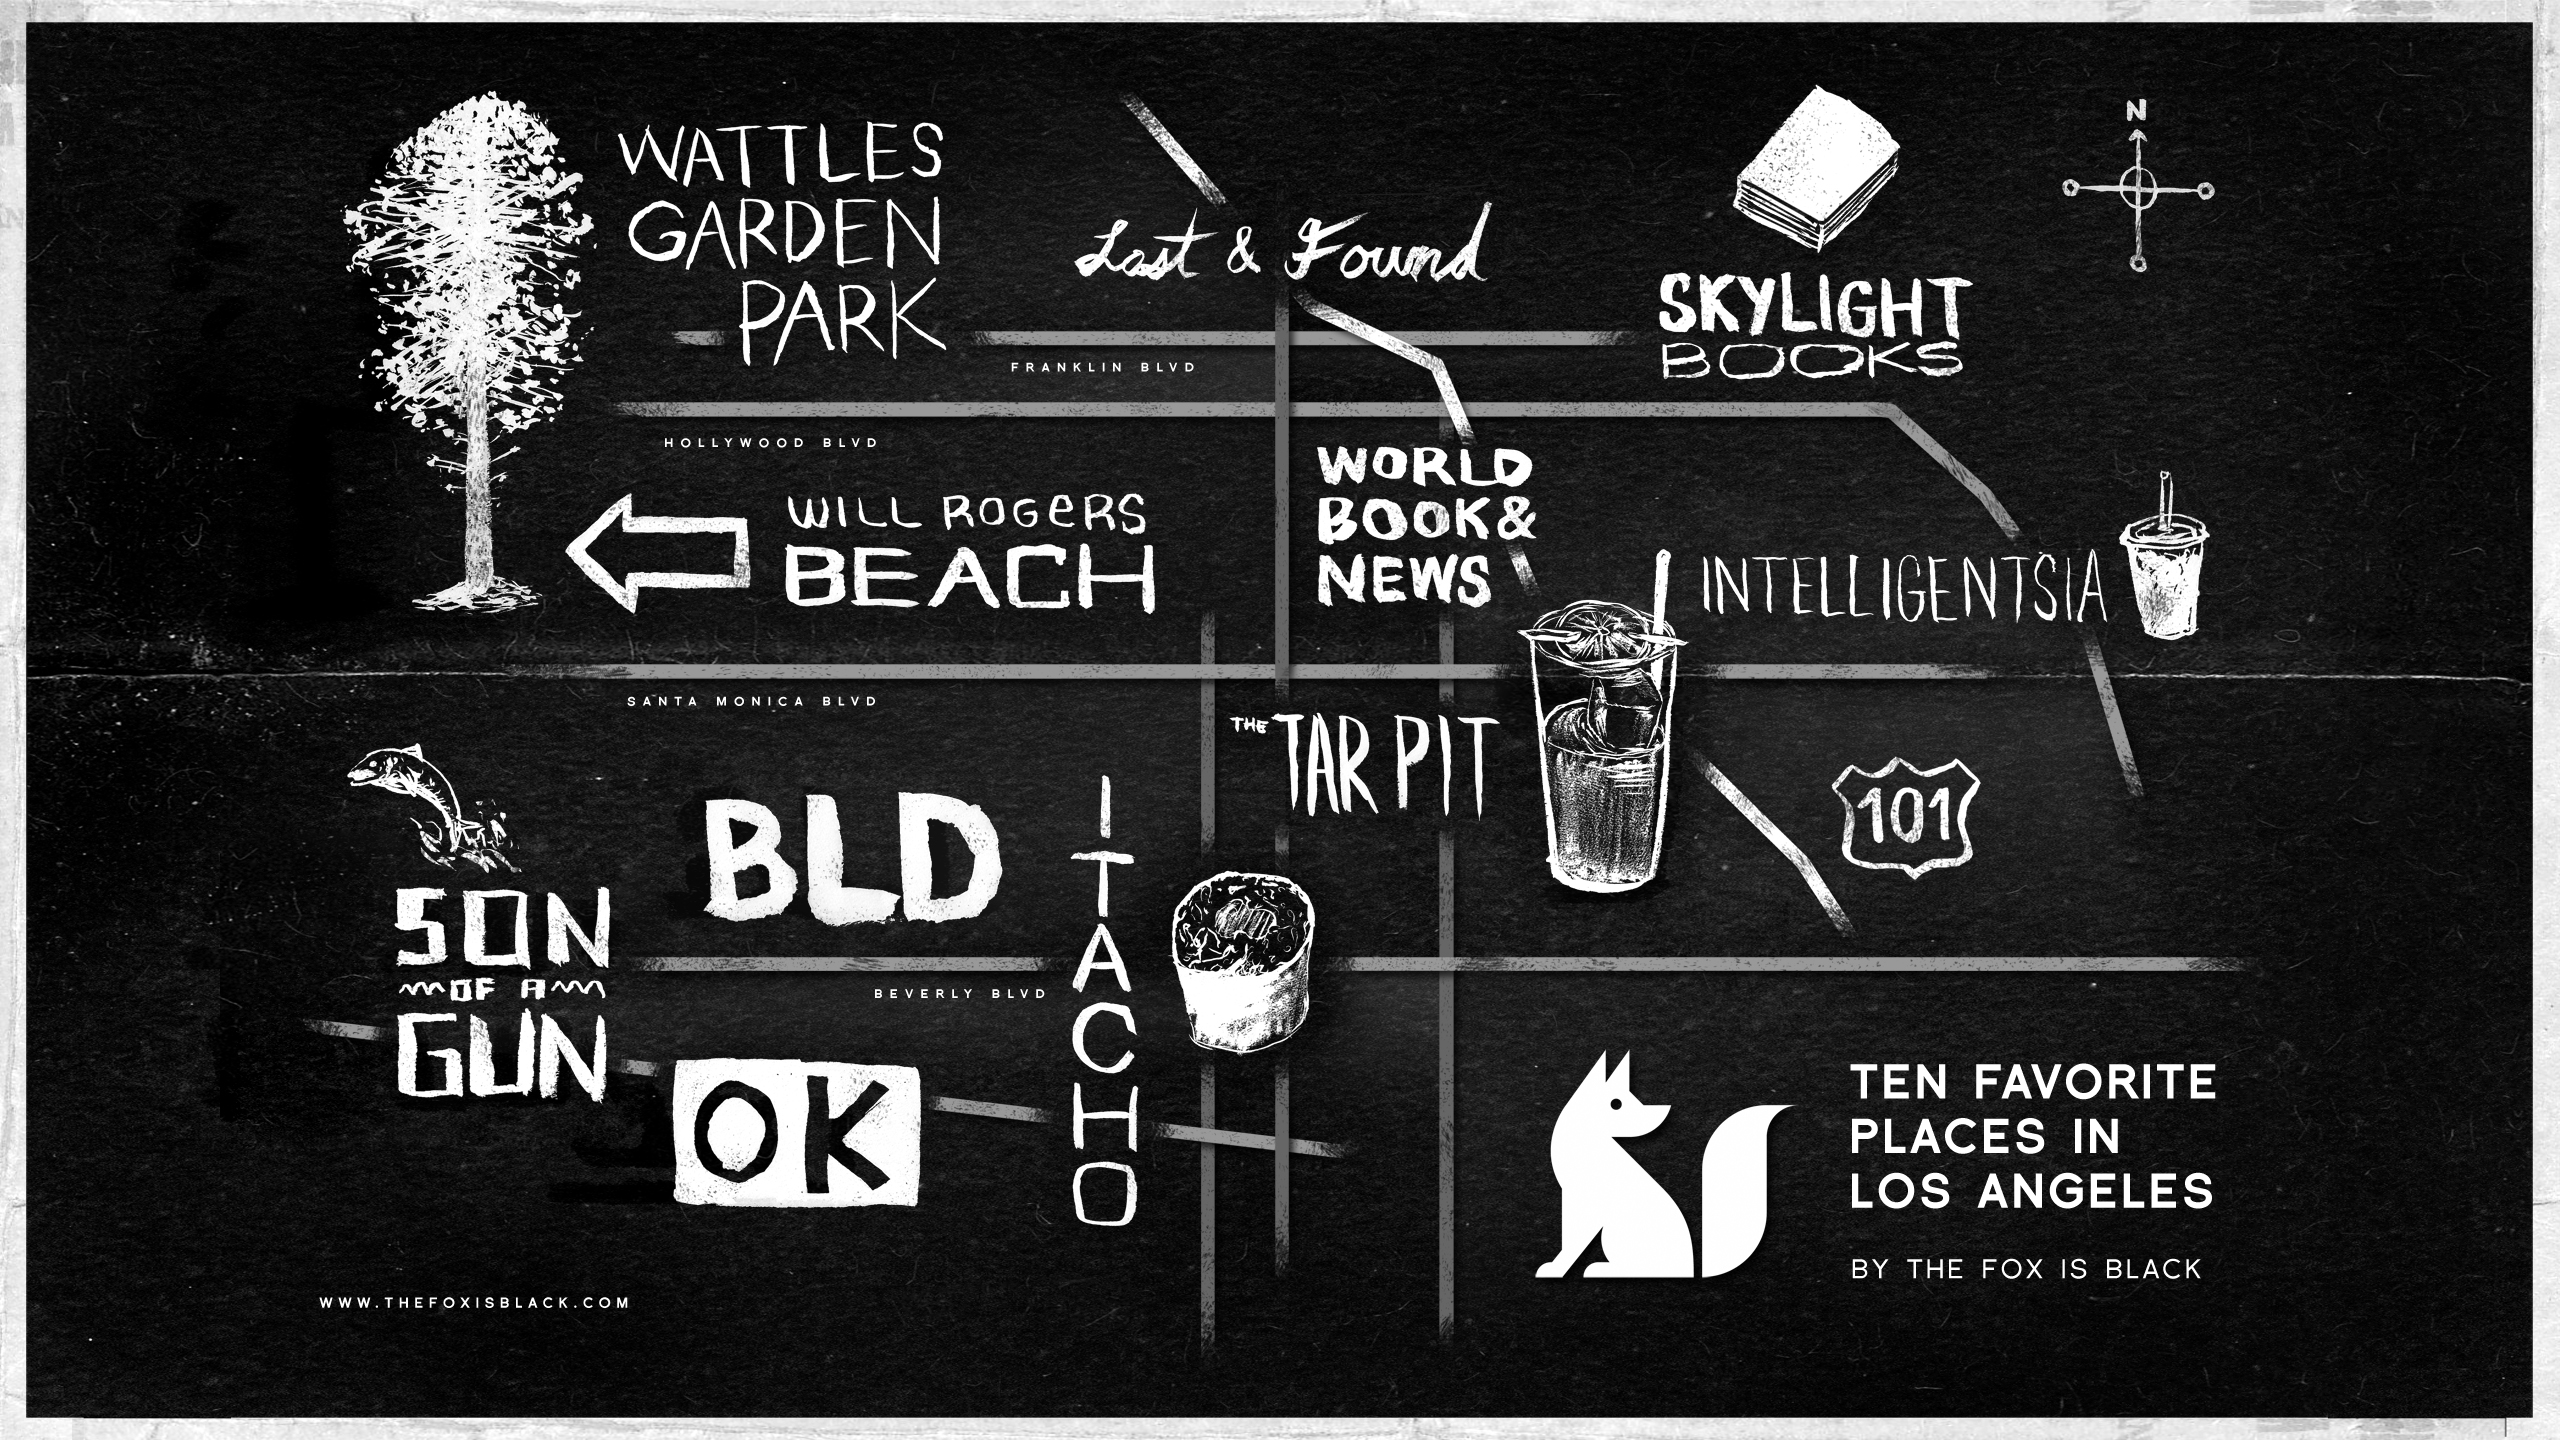 WATTLES
GARDEN
PARK
Lost & Found
SKYLIGHT
BOOKS
N
FRANKLIN BLVD
HOLLYWOOD BLVD
WILL ROGeRS
BEACH
WORLD
BOOK&
NEWS
INTELLIGENTSIA
SANTA MONICA BLVD
THE TAR PIT
101
BLD
ITACHO
SON
OF A
GUN
BEVERLY BLVD
OK
TEN FAVORITE
PLACES IN
LOS ANGELES
BY THE FOX IS BLACK
WWW.THEFOXISBLACK.COM